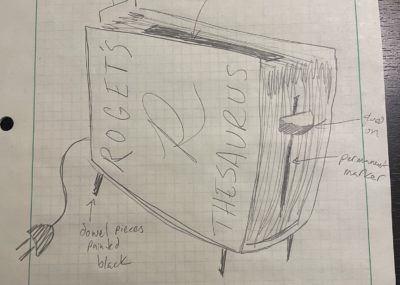 ROGET'S
R
THESAURUS
permanent
marker
on
dowel pieces
painted
black